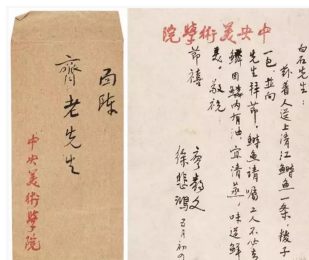 面陈
齊老先生
中央美術學院
中央美術學院
白石先生:
兹着人送上清江鰣魚一條,粽子
一包,並向
先生拜節,鰣魚請囑工人不必去
鱗因鱗内有油,宜清蒸,味道鮮
美,敬祝
節禧
廖静文
徐悲鴻
五月初四